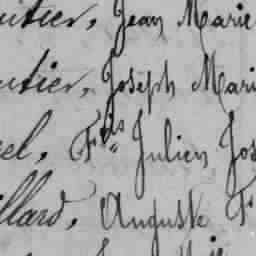 utier, Jean Marie
utier, Joseph Mari
el, Fçois Julien Jos
llard, Auguste F